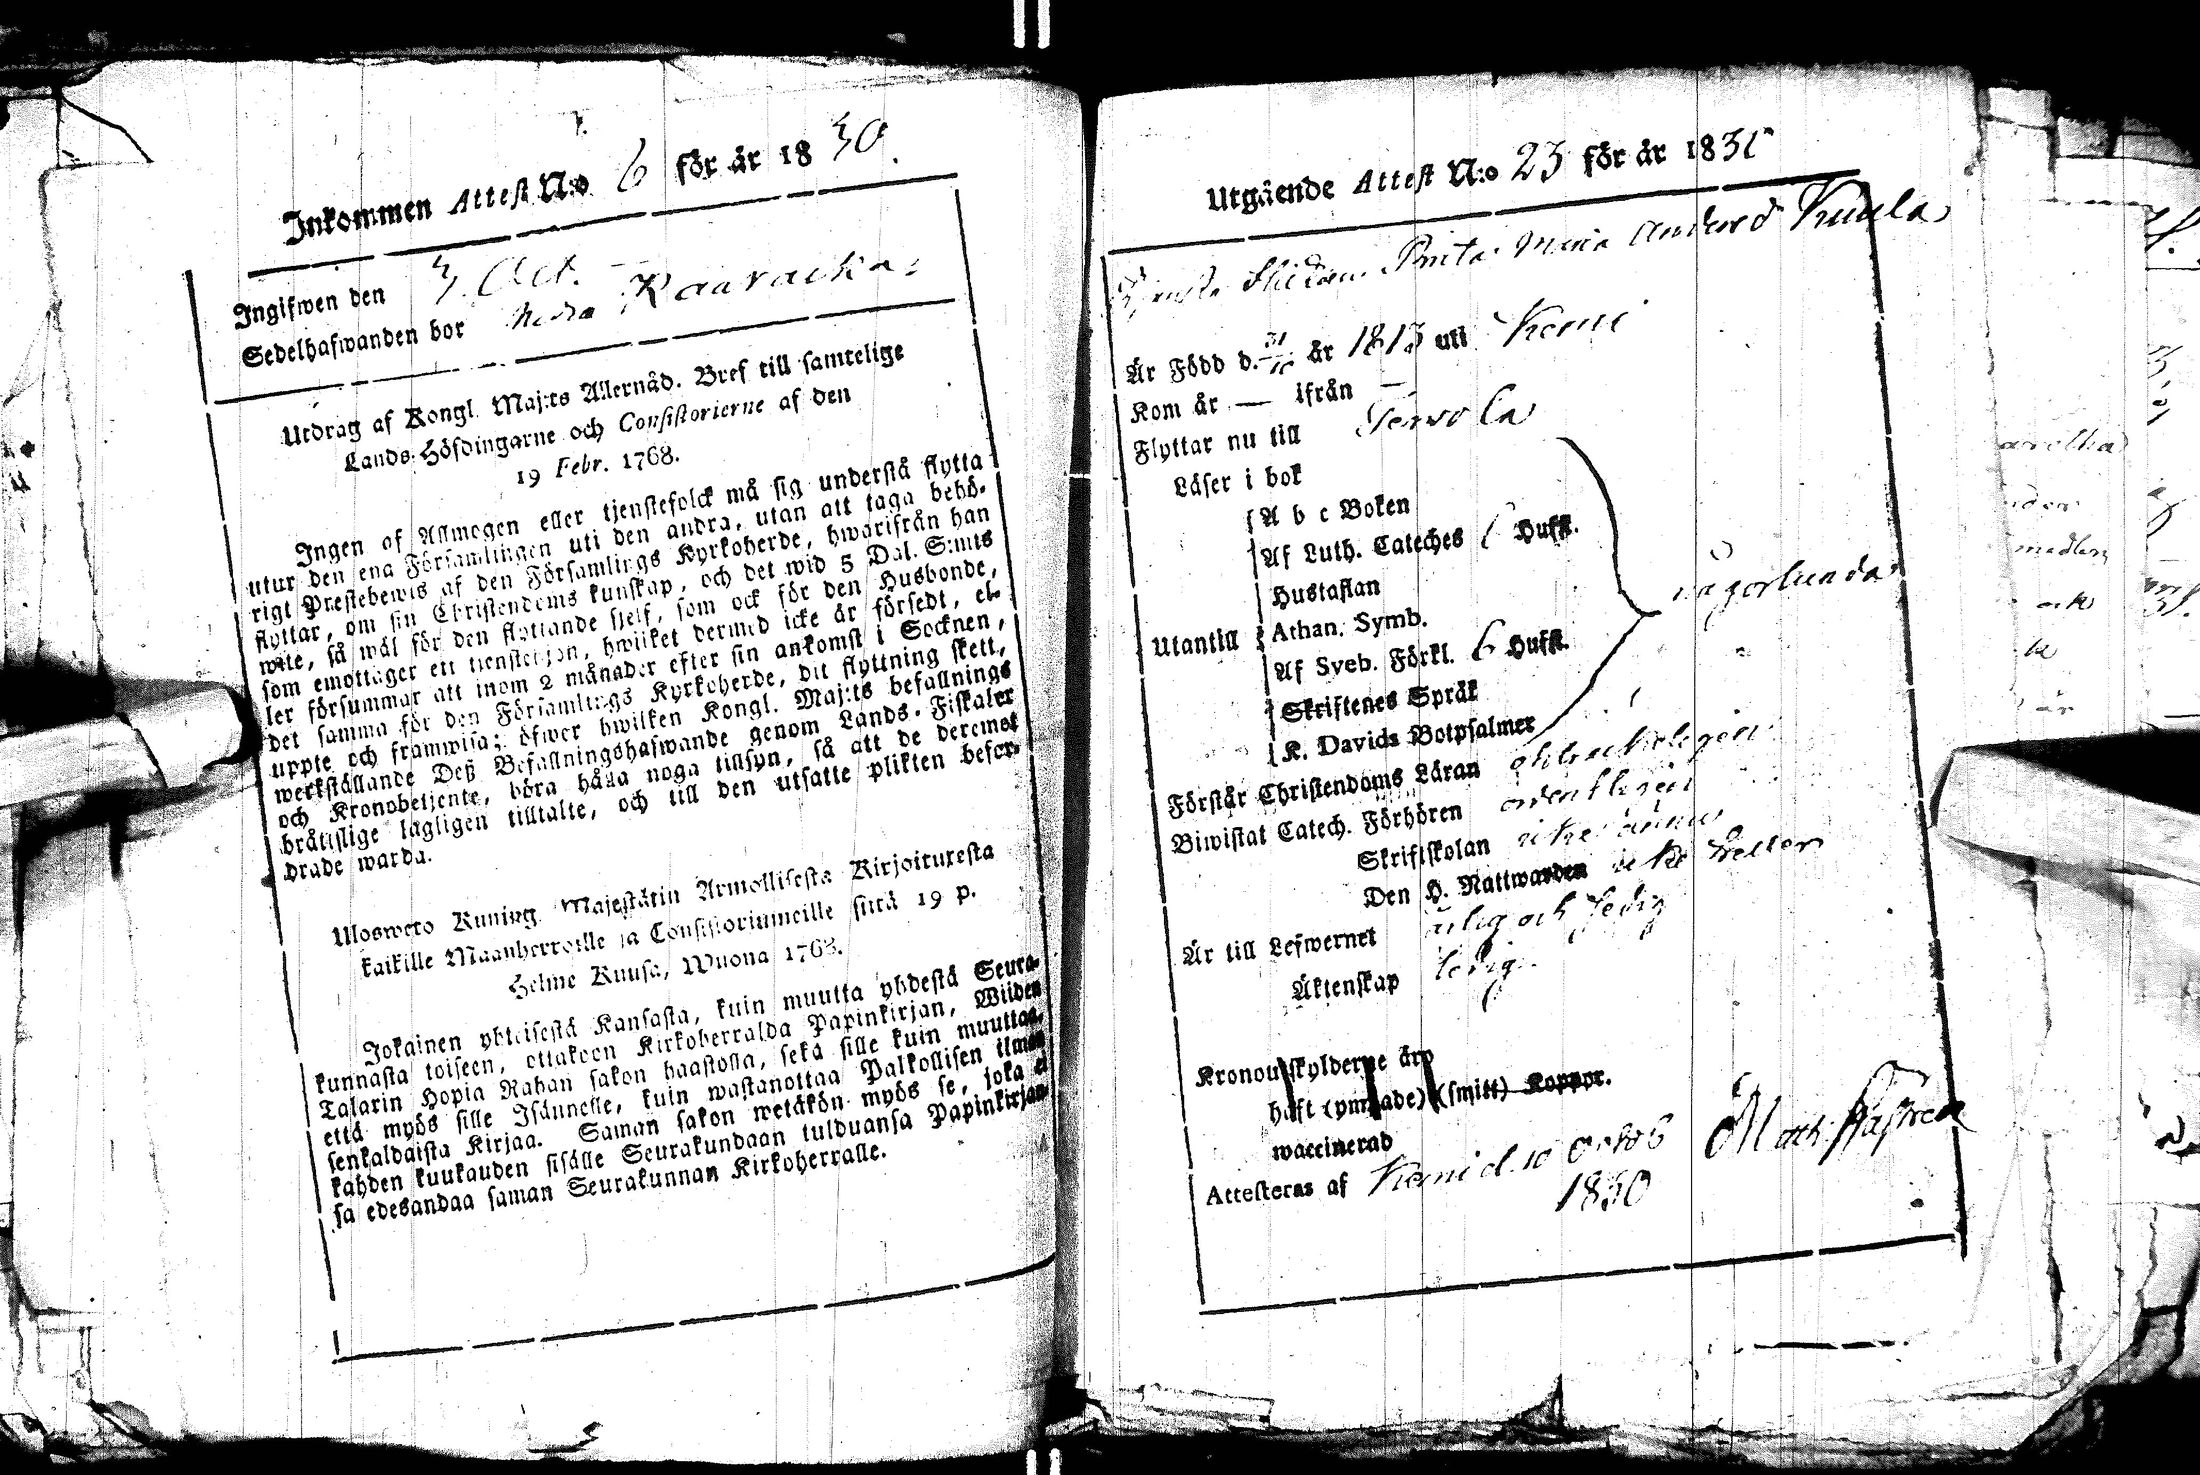 Inkommen Attest N:o 6 för år 1830.
Ingifwen den Oct.
Sedelhafwanden bor Nedra Raavacka
Utdrag af Kongl. Maj:ts Allernåd. Bref till samtelige
Lands-Höfdingarne och Consistorierne af den
19 Febr. 1768.
Ingen af Allmogen eller tjenstefolck må sig understå flytta
utur den ena Församlingen uti den andra, utan att taga behö-
rigt Prestebewis af den Församlings Kyrkoherde, hwarifrån han
flyttar, om sin Christendoms kunskap, och det wid 5 Dal. S:mts
wite, så wäl för den flyttande sjelf, som ock för den Husbonde,
som emottager ett tienstehjon, hwilket dermed icke är försedt, el-
ler försummar att inom 2 månader efter sin ankomst i Socknen,
det samma för den Församlings Kyrkoherde, dit flyttning skett,
uppte och framwisa; öfwer hwilken Kongl. Maj:ts befallnings
werkställande Deß Befallningshafwande genom Lands-Fiskaler
och Kronobetjente, böra hålla noga tillsyn, så att de deremot
bråtislige lagligen tilltalte, och till den utsatte plikten befor-
drade warda.
Ulosweto Kuning. Majestätin Armollisesta Kirjoituresta
kaikille Maanherroille ja Consistoriumeille siitä 19 p.
Helme Kuusa, Wuona 1768.
Jokainen yhteisestä Kansasta, kuin muutta yhdestä Seura-
kunnasta toiseen, ottakoon Kirkoherralda Papinkirjan, Wiiden
Talarin Hopia Rahan sakon haastolla, sekä sille kuin muuttaa,
että myös sille Isännelle, kuin wastanottaa Palkollisen ilman
senkaldaista Kirjaa. Saman sakon wetäkön myös se, joka ei
kahden kuukauden sisälle Seurakundaan tulduansa Papinkirjan-
sa edesandaa saman Seurakunnan Kirkoherralle.
Utgående Attest N:o 23 för år 183
Brita Maria Anders d Kuula
Är Född d. 31/10 år 1813 uti Kemi
Kom år — ifrån —
Flyttar nu till Tervola
Läser i bok
A b c Boken
Af Luth. Cateches 6 Hufst.
Hustaflan
Utantill Athan. Symb.
någorlunda
Af Sveb. Förkl. 6 Hufst.
Skriftenes Språk
K. Davids Botpsalmer
Förstår Christendoms Läran
Biwistat Catech. Förhören ordentligen
Skriftskolan icke ännu
Den H. Nattwarden icke heller
Är till Lefwernet ärlig och
Äktenskap ledig
Kronoutskylderne äro
haft (ympade) (smitt) Koppor.
waccinerad
Attesteras af Kemi d. 10 Octob
1830
Math.